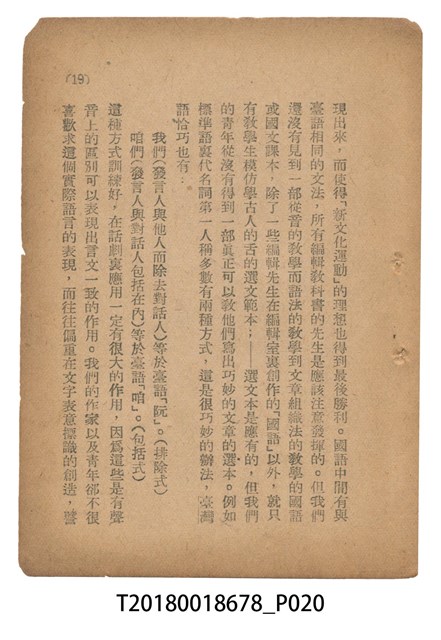 現出來，而使得「新文化運動」的理想也得到最後勝利。國語中間有與
臺語相同的文法，所有編輯教科書的先生是應該注意發揮的。但我們
還沒有見到一部從音的教學而語法的教學到文章組織法的教學的國語
或國文課本，除了一些編輯先生在編輯室裏創作的「國語」以外，就只
有教學生模仿學古人的舌的選文範本；——選文本是應有的，但我們
的青年從沒有得到一部眞正可以教他們寫出巧妙的文章的選本。例如
標準語裏代名詞第一人稱多數有兩種方式，這是很巧妙的辦法，臺灣
語恰巧也有：
我們（發言人與他人而除去對話人）等於臺語「阮」。（排除式）
咱們（發言人與對話人包括在內）等於臺語「咱」。（包括式）
這種方式訓練好，在話劇裏應用一定有很大的作用，因爲這些是有聲
音上的區別可以表現出言文一致的作用。我們的作家以及青年卻不很
喜歡求這個實際語言的表現，而往往偏重在文字表意標識的創造，譬
(19)
T20180018678_P020